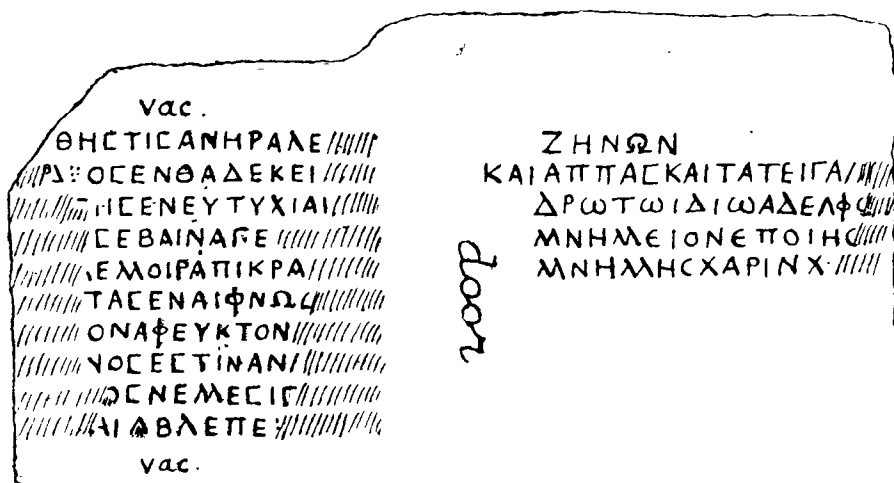 vac.
ΘΗϹΤΙϹΑΝΗΡΑΛΕ
ΟϹΕΝΘΑΔΕΚΕΙ
ΙϹΕΝΕΥΤΥΧΙΑΙ
ϹΕΒΑΙΝΑΓΕ
ΕΜΟΙΡΑΠΙΚΡΑ
ΤΑϹΕΝΑΙΦΝΩϹ
ΟΝΑΦΕΥΚΤΟΝ
ΟϹΕϹΤΙΝΑΝ
ϹΝΕΜΕϹΙΓ
ΒΛΕΠΕ
vac.
door
ΖΗΝΩΝ
ΚΑΙΑΠΠΑϹΚΑΙΤΑΤΕΙΓΑ
ΔΡωΤωΙΔΙωΑΔΕΛΦ
ΜΝΗΜΕΙΟΝΕΠΟΙΗϹ
ΜΝΗΜΗϹΧΑΡΙΝΧ